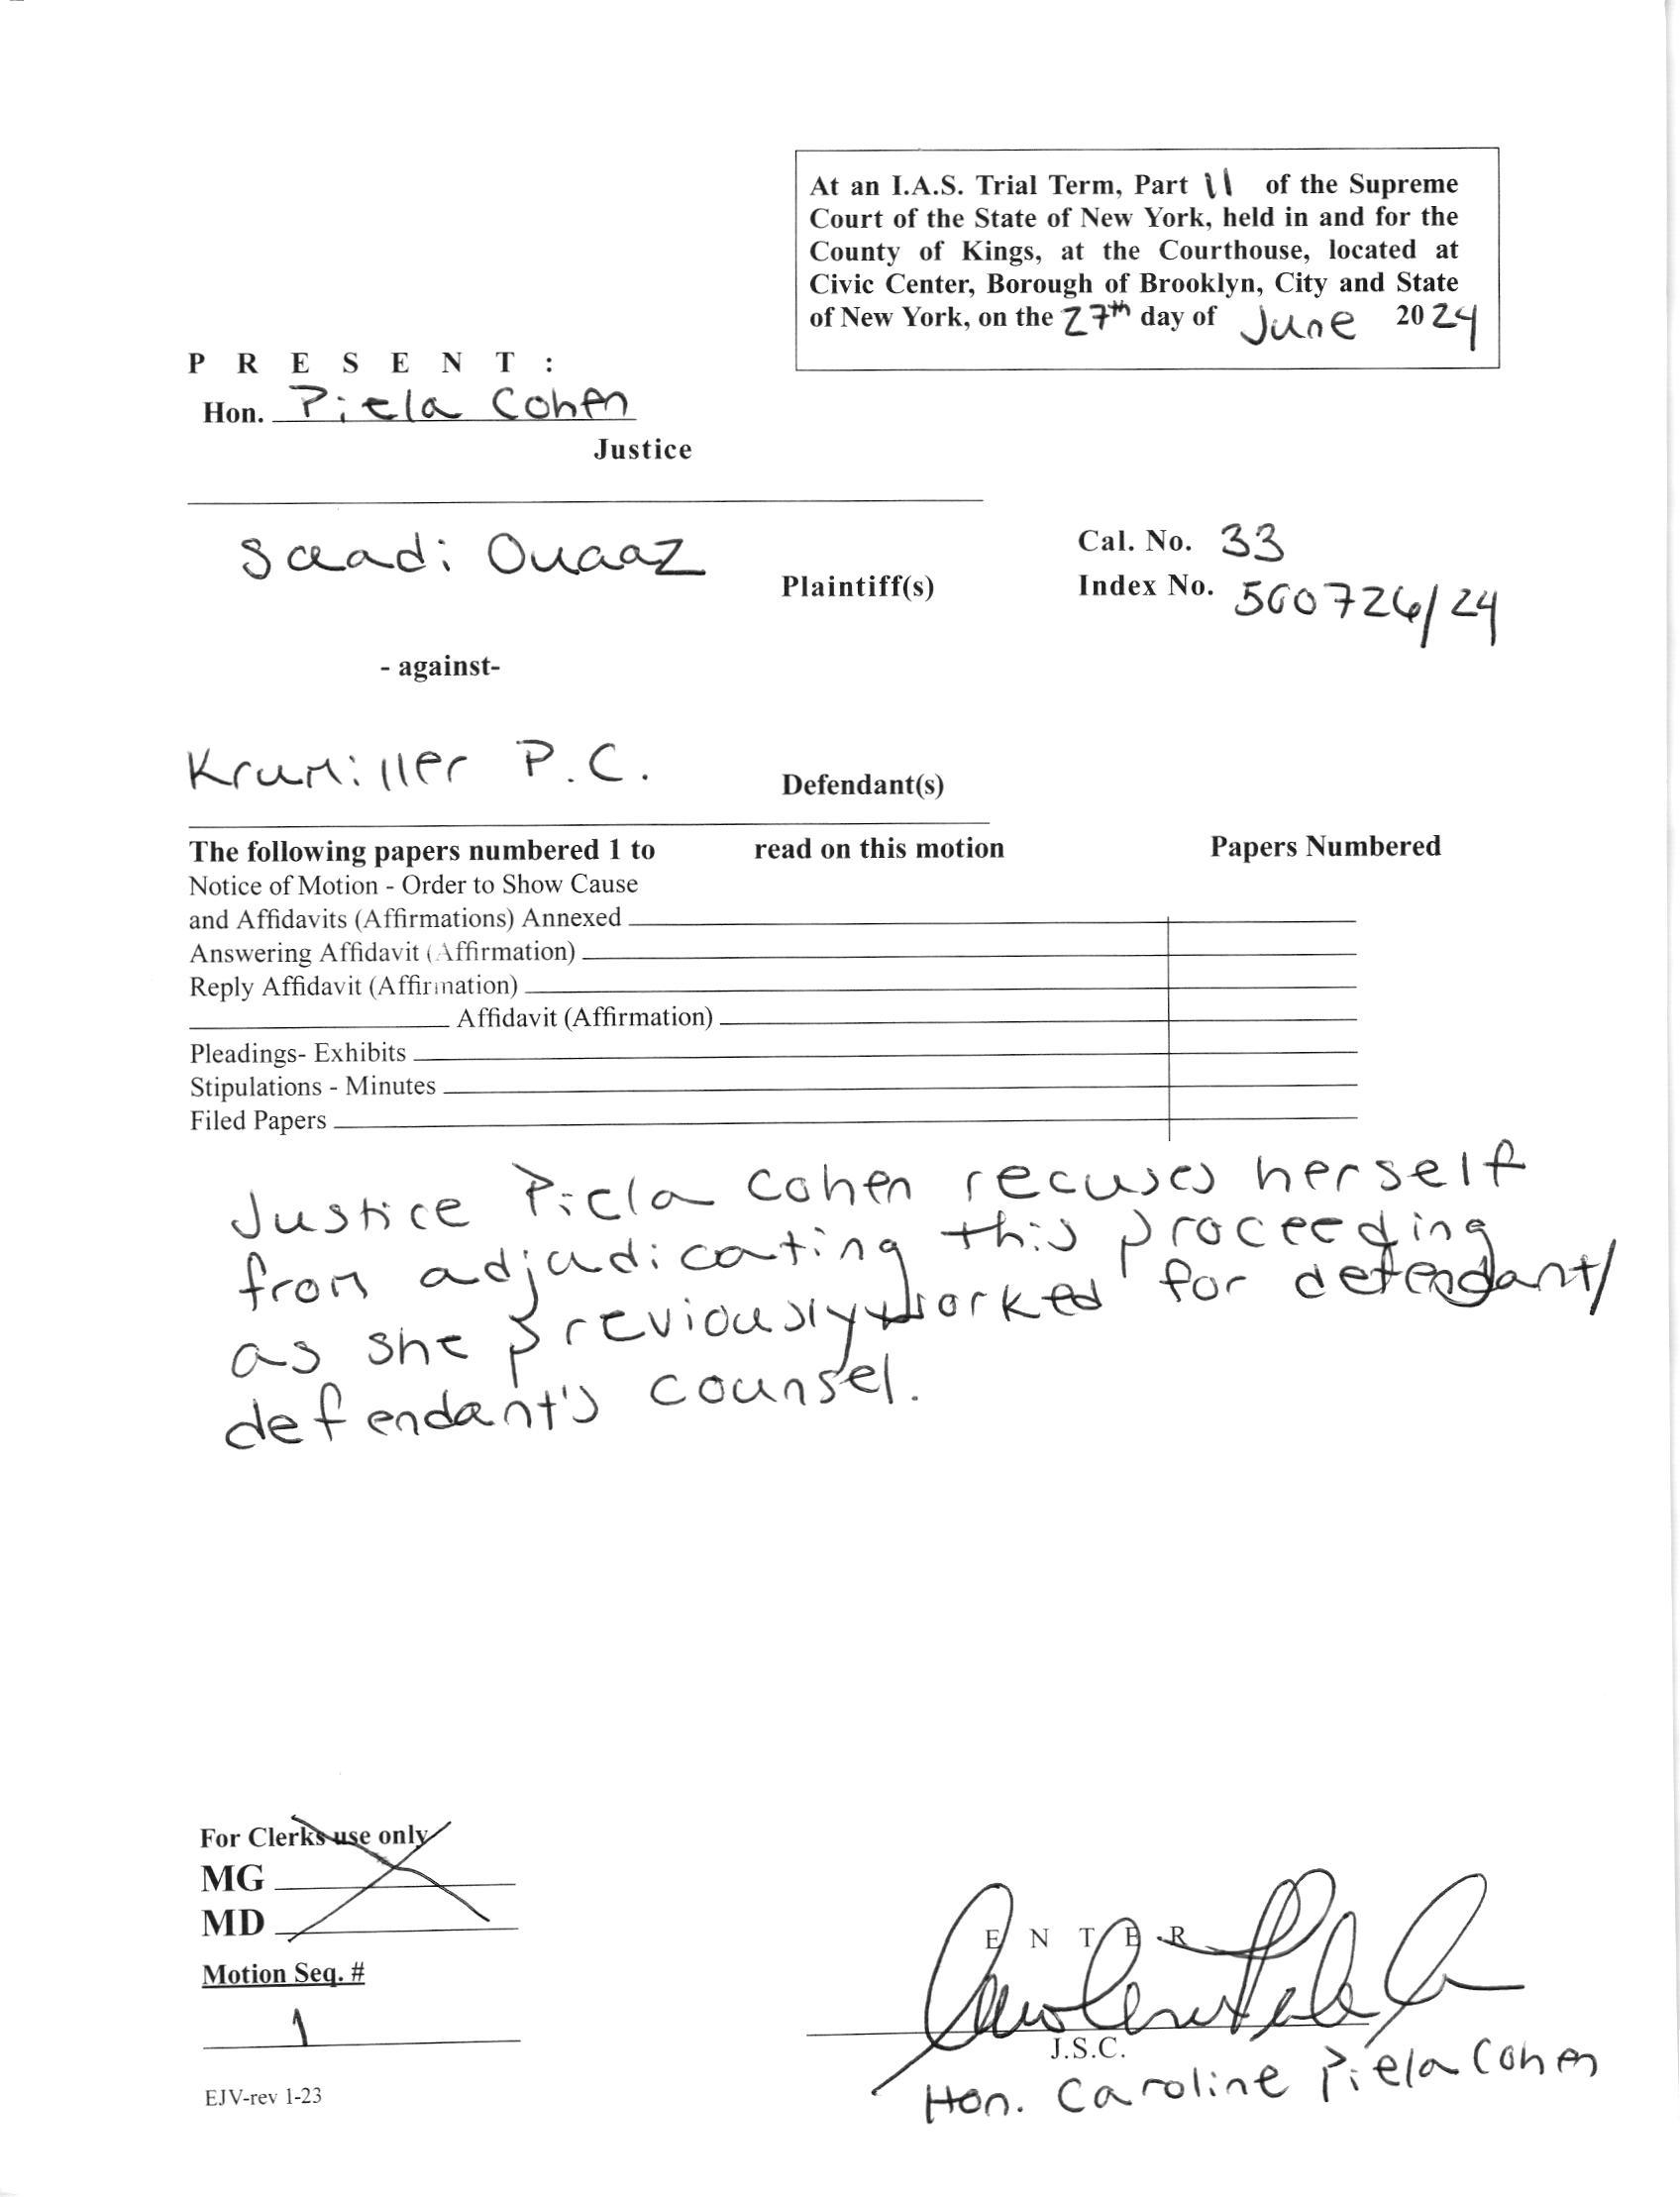 At an I.A.S. Trial Term, Part 11 of the Supreme
Court of the State of New York, held in and for the
County of Kings, at the Courthouse, located at
Civic Center, Borough of Brooklyn, City and State
of New York, on the 27th day of June 2024
P R E S E N T :
Hon. Piela Cohen
Justice
Saadi Ouaaz Plaintiff(s)
Cal. No. 33
Index No. 500726/24
- against-
Krumiller P.C. Defendant(s)
The following papers numbered 1 to read on this motion Papers Numbered
Notice of Motion - Order to Show Cause
and Affidavits (Affirmations) Annexed
Answering Affidavit (Affirmation)
Reply Affidavit (Affirmation)
Affidavit (Affirmation)
Pleadings- Exhibits
Stipulations - Minutes
Filed Papers
Justice Piela Cohen recuses herself
from adjudicating this proceeding
as she previously worked for defendant/
defendant's counsel.
For Clerks use only
MG
MD
Motion Seq. #
1
EJV-rev 1-23
E N T E R
J.S.C.
Hon. Caroline Piela Cohen